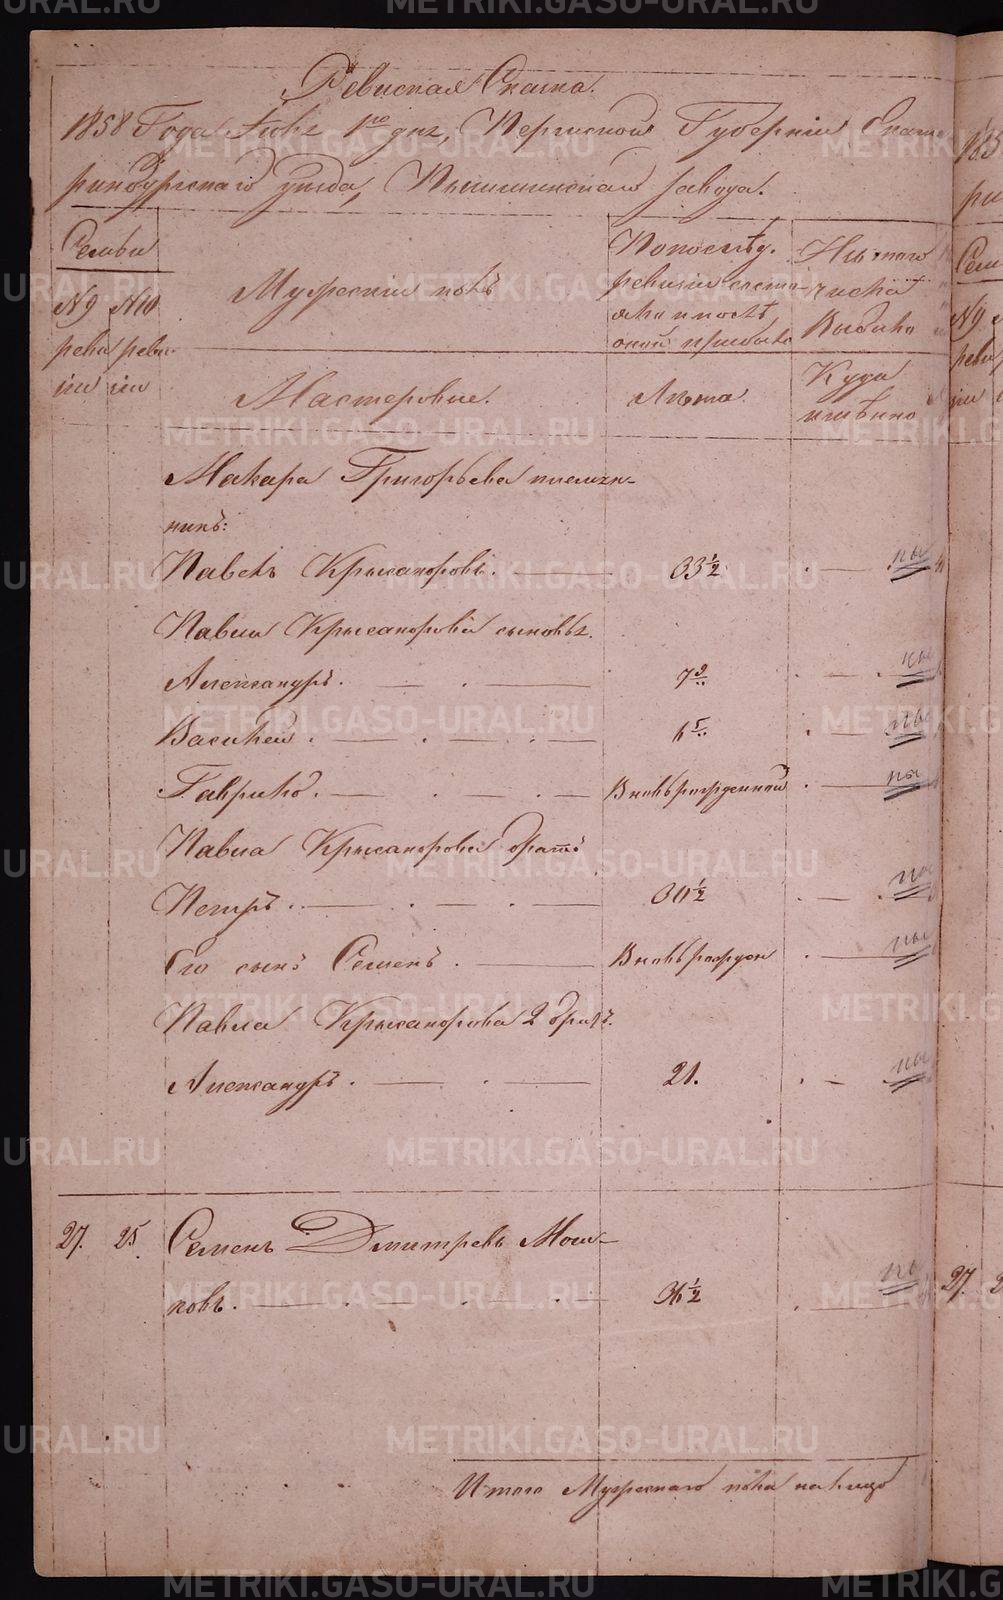 Ревиская Сказка.
1858 Года Июня 1го дня, Пермской Губернии Екате
ринбургскаго уезда, Пышминскаго завода.
Семьи
Мужескій полъ
По послѣд. ревизіи состо
яло и послѣ оной прибыло
Изъ того числа Выбыло
№9 ревизіи
№10 ревизіи
Мастеровые.
Лѣта.
Куда имѣнно
Макара Григорьева племян-
никъ:
Павелъ Крысанфовъ. 33½ пы
Павла Крысанфова сыновья.
Александръ. 7 пы
Василей. пы
Гаврило. Вновьрожденной пы
Павла Крысанфова братъ
Петръ. 30½ пы
Его сынъ Семенъ. Вновьрожден пы
Павла Крысанфова 2 братъ.
Александръ. 21. пы
27. 25 Семенъ Дмитревъ Мош-
ковъ. 36½ пы
Итого Мужескаго пола на лицо
METRIKI.GASO-URAL.RU